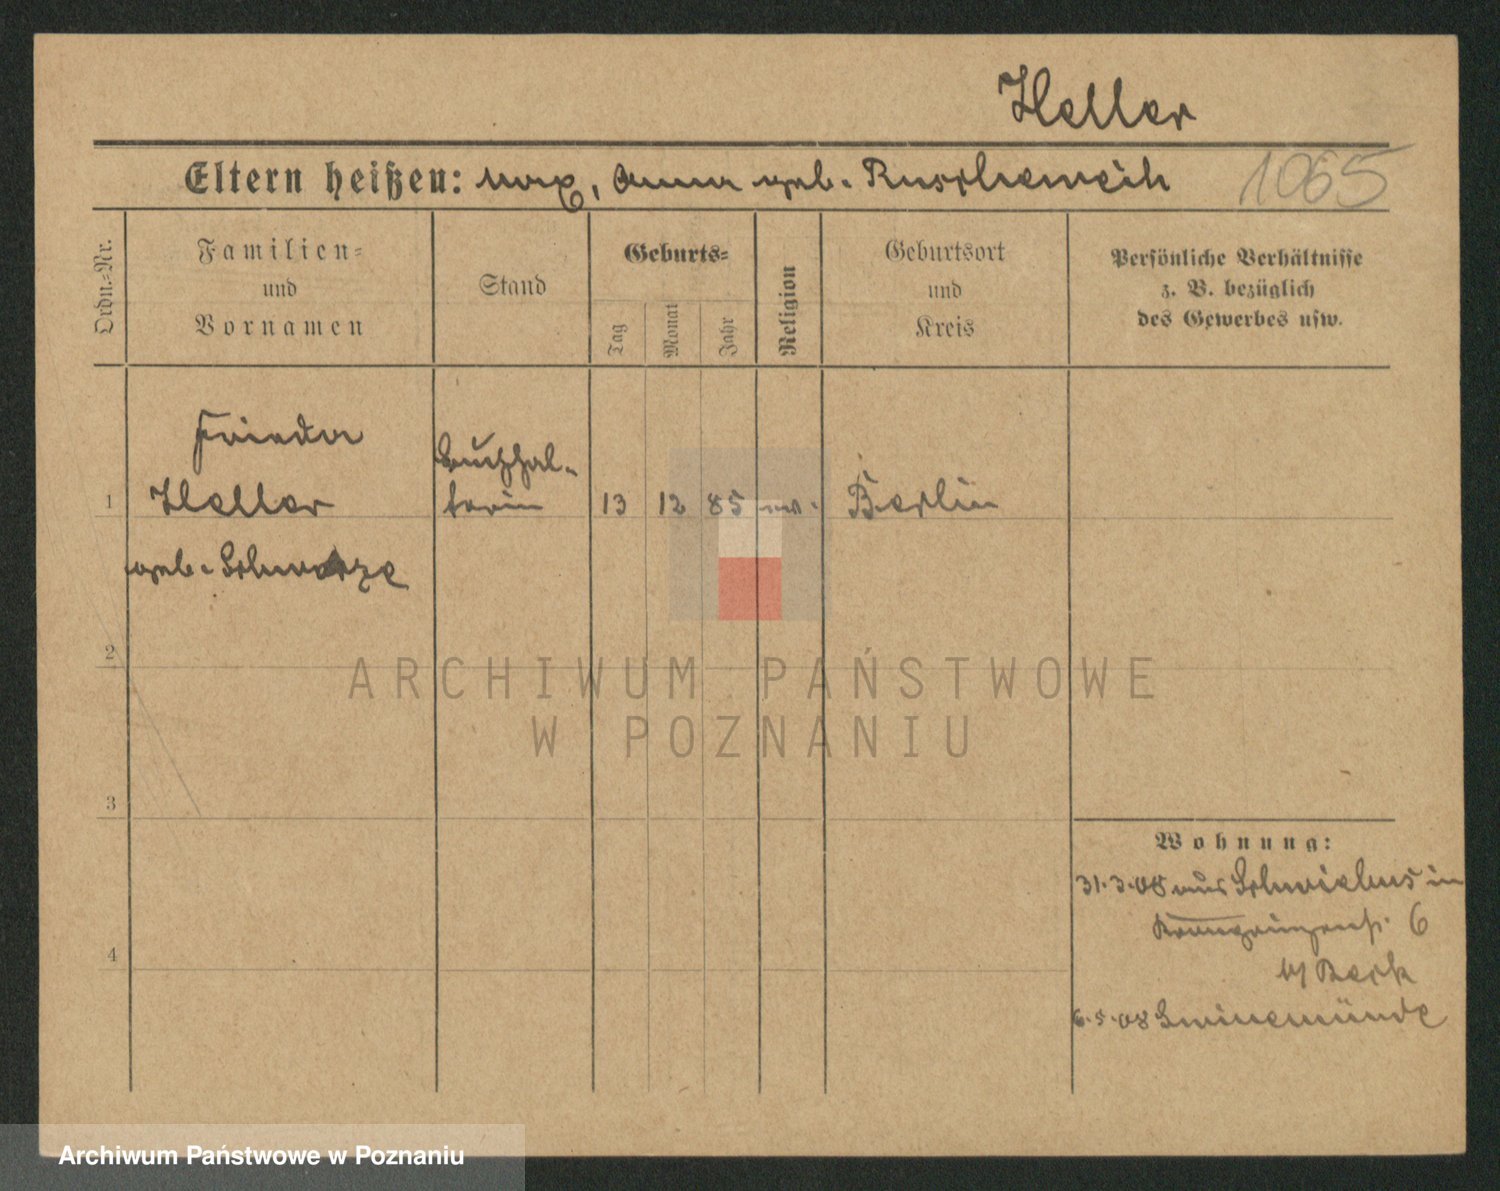 Heller
Eltern heißen: Max, Anna geb.
1065
Ordn.=Nr.
Familien=
und
Vornamen
Stand
Geburts=
Tag
Monat
Jahr
Religion
Geburtsort
und
Kreis
Persönliche Verhältnisse
z. B. bezüglich
des Gewerbes usw.
Frieda
Buchhal-
1 Heller terin 13 12 85 ev. Berlin
geb. Schwarze
2
ARCHIWUM PAŃSTWOWE
W POZNANIU
3
Wohnung:
31.3.08 aus Schwiebus in
6
4
b/ Bock
6.5.08 Swinemünde
Archiwum Państwowe w Poznaniu